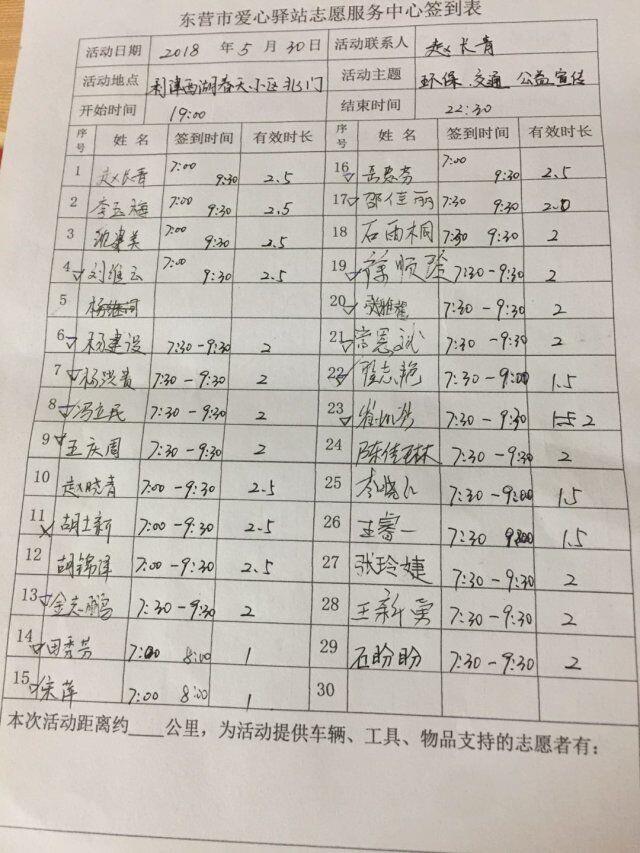 东营市爱心驿站志愿服务中心签到表
活动日期 2018 年 5 月 30日 活动联系人 赵长青
活动地点 利津西湖春天小区北门 活动主题 环保 交通 公益宣传
开始时间 19:00 结束时间 22:30
序号 姓名 签到时间 有效时长 序号 姓名 签到时间 有效时长
1 赵长青 7:00 9:30 2.5 16 7:00 9:30 2.5
2 李玉梅 7:00 9:30 2.5 17 邵佳丽 7:30 9:30 2.0
3 7:00 9:30 2.5 18 石雨桐 7:30 9:30 2
4 刘维云 7:00 9:30 2.5 19 徐顺 7:30-9:30 2
5 20 7:30-9:30 2
6 杨建设 7:30-9:30 2 21 7:30-9:30 2
7 杨洪贵 7:30-9:30 2 22 志艳 7:30-9:00 1.5
8 冯立民 7:30-9:30 2 23 7:30-9:30 2
9 王庆周 7:30-9:30 2 24 陈佳琳 7:30-9:30 2
10 赵晓青 7:00-9:30 2.5 25 李晓 7:30-9:00 1.5
11 胡士新 7:00-9:30 2.5 26 王睿一 7:30 9:00 1.5
12 胡锦泽 7:00-9:30 2.5 27 张玲婕 7:30-9:30 2
13 金志鹏 7:30-9:30 2 28 王新勇 7:30-9:30 2
14 田秀芳 7:00 8:00 1 29 石盼盼 7:30-9:30 2
15 徐萍 7:00 8:00 1 30
本次活动距离约____公里，为活动提供车辆、工具、物品支持的志愿者有：